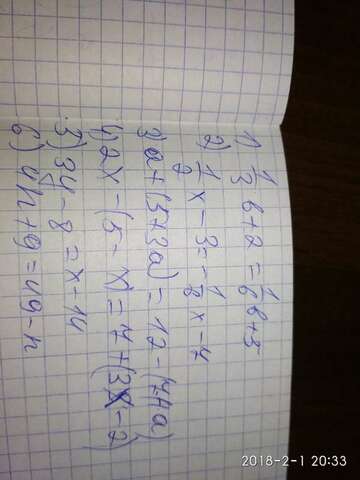 1) 1/3 b + 2 = 1/6 b + 5
2) 1/2 x - 3 = - 1/8 x - 4
3) a + (5 + 3a) = 12 - (4 + a)
4) 2x - (5 - x) = 4 + (3x - 2)
3) 3y - 8 = x - 14
6) 4h + 9 = 49 - h
2018-2-1 20:33